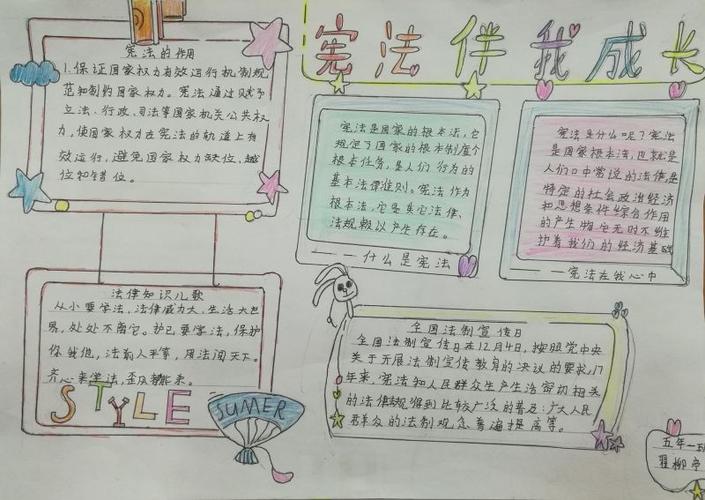 宪法伴我成长
宪法的作用
1.保证国家权力有效运行机制规
范和制约国家权力。宪法通过赋予
立法、行政、司法等国家机关公共权
力,使国家权力在宪法的轨道上有
效运行,避免国家权力缺位、越
位和错位。
宪法是国家的根本法,它
规定了国家的根本制度个
根本任务,是人们行为的
基本法律准则。宪法作为
根本法,它是其它法律、
法规赖以产生存在。
什么是宪法
宪法是什么呢?宪法
是国家根本法,也就是
人们口中常说的法律,是
特定的社会政治经济
和思想条件综合作用
的产生物它无时不维
护着我们的经济基础
一宪法在我心中
法律知识儿歌
从小要学法,法律威力大,生活大也
易,处处不离它。护己要学法,保护
你我他,法前人平享,用法闯天下。
齐心来学法,
STYLE
SUMER
全国法制宣传日
全国法制宣传日在12月4日,按照党中央
关于开展法制宣传教育的决议的要求,17
年来,宪法知人民群众生产生活密切相关
的法律规得到比较广泛的普及:广大人民
群众的法制观念普遍提高等。
五年一班